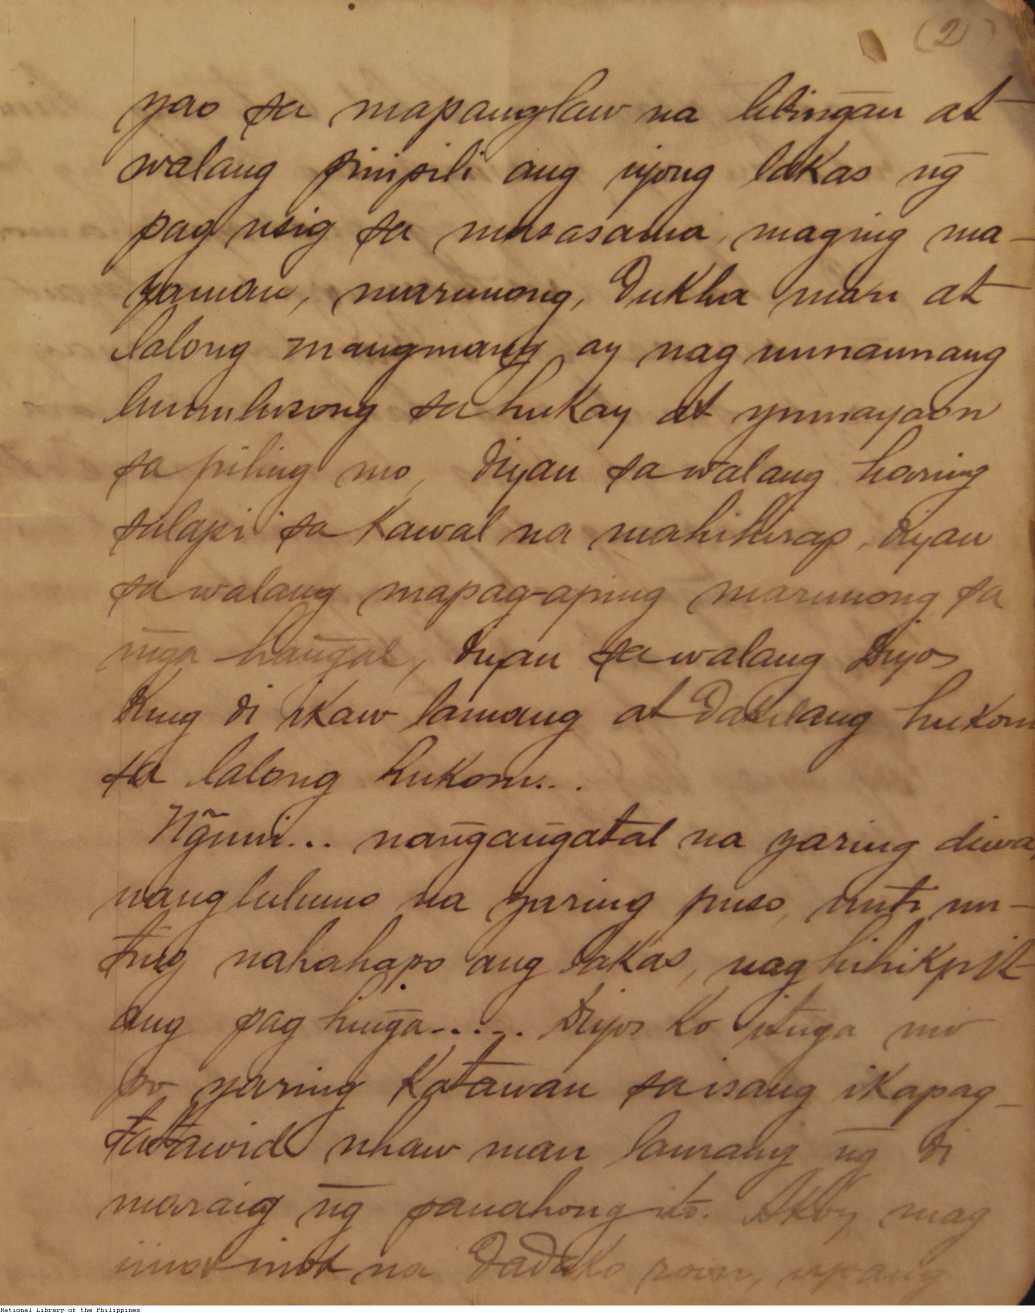 (2)
yao sa mapanglaw na libiñgan at
walang pinipili ang iyong lakas ñg
pag usig sa masasama, maging ma-
yaman, marunong, dukha man at
lalong mangmang ay nag uunaunang
lumulusong sa hukay at yumayaon
sa piling mo, diyan sa walang haring
salapi sa kawal na mahihirap, diyan
sa walang mapag-aping marunong sa
mga hañgal, diyan sa walang Diyos
kung di ikaw lamang at dakilang hukom
sa lalong hukom...
Ñguni... nañgañgatal na yaring diwa
nanglulumo na yaring puso, unti un-
ting nahahapo ang lakas, nag hihikpit
ang pag hiñga..... Diyos ko itñga mo
po yaring katawan sa isang ikapag-
tatawid uhaw man lamang ñg di
maraig ñg panahong ito. Ako'y mag
iinot inot na dadako roon, upang
National Library of the Philippines